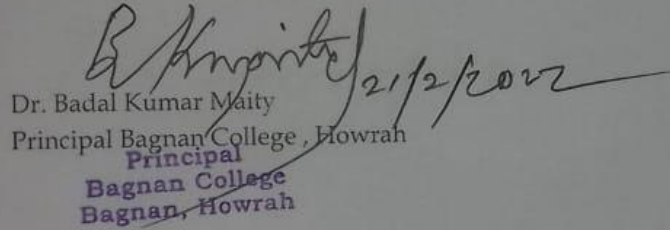 B Kmaity 21/2/2022
Dr. Badal Kumar Maity
Principal Bagnan College , Howrah
Principal
Bagnan College
Bagnan, Howrah